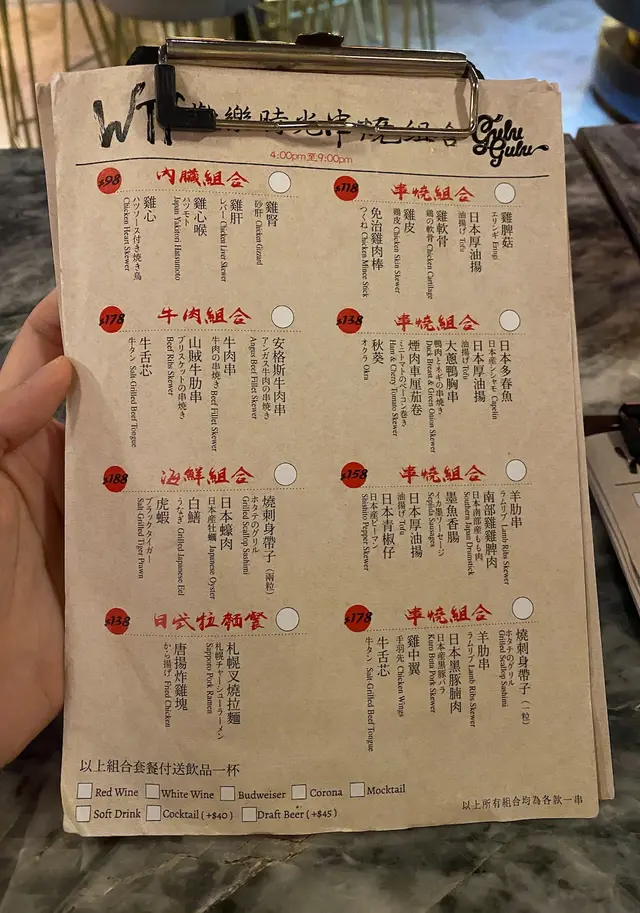 WTF 歡樂時光串燒組合
Gulu Gulu
4:00pm至9:00pm
$98 內臟組合
雞腎
砂肝 Chicken Gizzard
雞肝
レバー Chicken Liver Skewer
雞心喉
ハツモト
Japan Yakitori Hatsumoto
雞心
ハツソース付き焼き鳥
Chicken Heart Skewer
$118 串燒組合
雞脾菇
エリンギ Eringi
日本厚油揚
油揚げ Tofu
雞軟骨
鶏の軟骨 Chicken Cartilage
雞皮
鶏皮 Chicken Skin Skewer
免治雞肉棒
つくね Chicken Mince Stick
$178 牛肉組合
安格斯牛肉串
アンガス牛肉の串焼き
Angus Beef Fillet Skewer
牛肉串
牛肉の串焼き Beef Fillet Skewer
山賊牛肋串
ブリスケットの串焼き
Beef Ribs Skewer
牛舌芯
牛タン Salt Grilled Beef Tongue
$138 串燒組合
日本多春魚
日本産シシャモ Capelin
日本厚油揚
油揚げ Tofu
大蔥鴨胸串
鴨肉とネギの串焼き
Duck Breast & Green Onion Skewer
煙肉車厘茄卷
Ham & Cherry Tomato Skewer
秋葵
オクラ Okra
$188 海鮮組合
燒刺身帶子（兩粒）
ホタテのグリル
Grilled Scallop Sashimi
日本蠔肉
日本産牡蠣 Japanese Oyster
白鱔
うなぎ Grilled Japanese Eel
虎蝦
ブラックタイガー
Salt Grilled Tiger Prawn
$158 串燒組合
羊肋串
ラムリブ Lamb Ribs Skewer
南部雞雞脾肉
日本南部産もも肉
Southern Japan Drumstick
墨魚香腸
イカ墨ソーセージ
Sepiida Sausages
日本厚油揚
油揚げ Tofu
日本青椒仔
日本産ピーマン
Shishito Pepper Skewer
$138 日式拉麵餐
札幌叉燒拉麵
札幌チャーシューラーメン
Sapporo Pork Ramen
唐揚炸雞塊
から揚げ Fried Chicken
$178 串燒組合
燒刺身帶子（一粒）
ホタテのグリル
Grilled Scallop Sashimi
羊肋串
ラムリブ Lamb Ribs Skewer
日本黑豚腩肉
日本産黒豚バラ
Kuro Buta Pork Skewer
雞中翼
手羽先 Chicken Wings
牛舌芯
牛タン Salt Grilled Beef Tongue
以上組合套餐付送飲品一杯
Red Wine White Wine Budweiser Corona Mocktail
Soft Drink Cocktail (+$40) Draft Beer (+$45)
以上所有組合均為各款一串